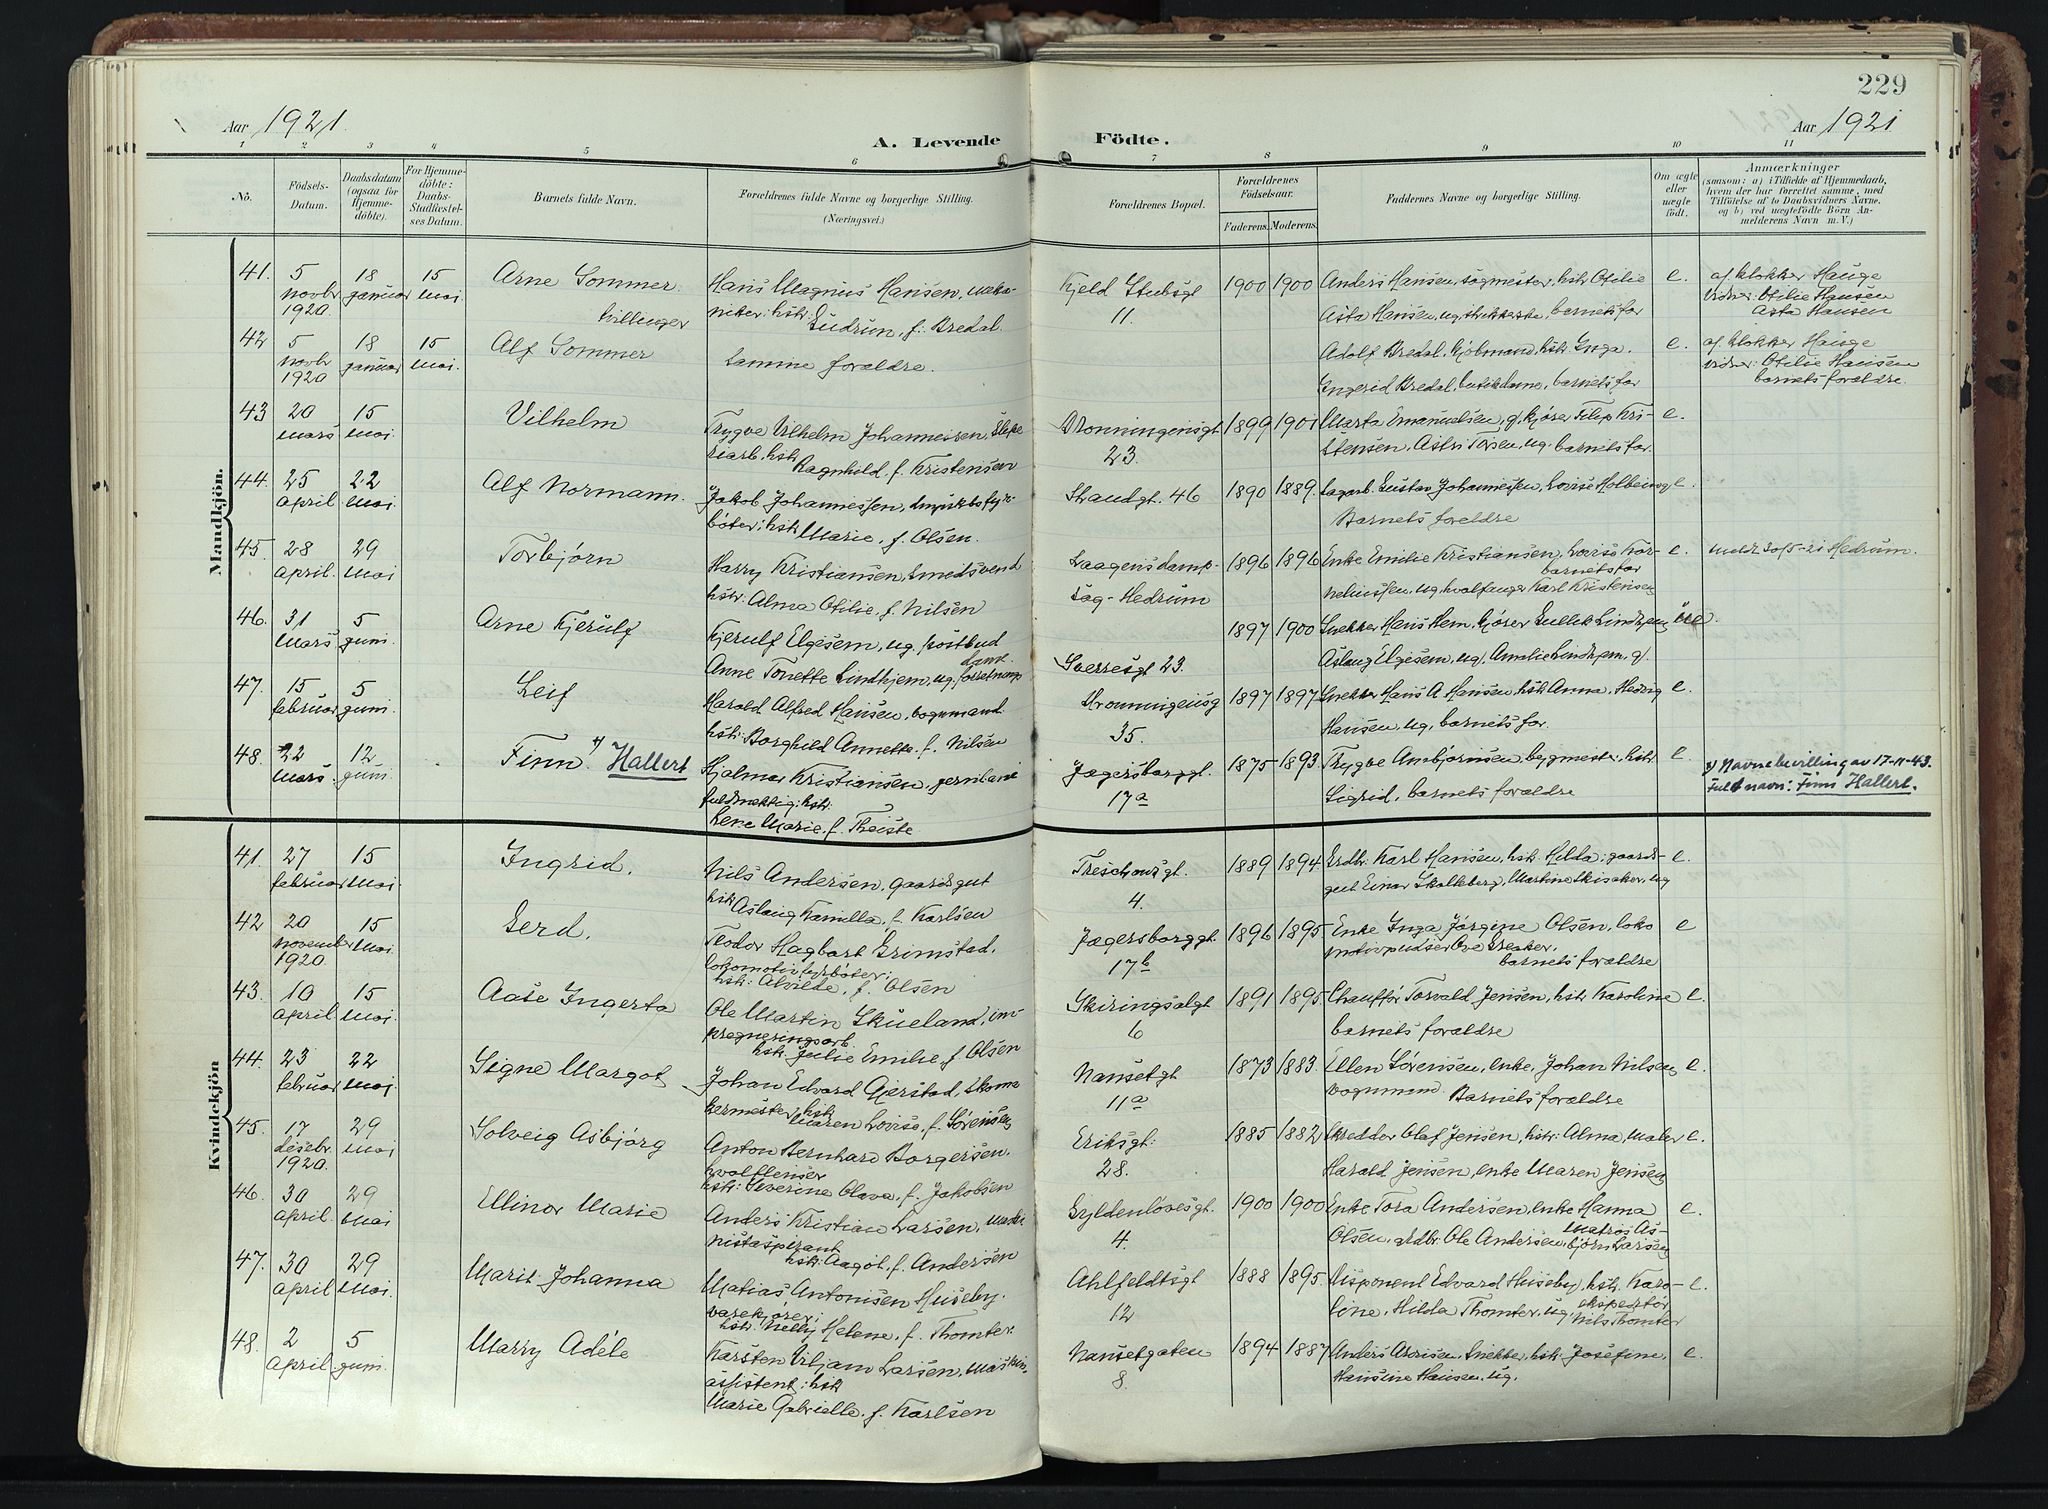 229
Aar 1921.
A. Levende Födte.
Aar 1921
1 2 3 4 5 6 7 8 9 10 11
No.
Födsels-Datum.
Daabsdatum (ogsaa for Hjemmedöbte).
For Hjemmedöbte: Daabs-Stadfæstelses Datum.
Barnets fulde Navn.
Forældrenes fulde Navne og borgerlige Stilling. (Næringsvei.)
Forældrenes Bopæl.
Forældrenes Födselsaar.
Faderens. Moderens.
Faddernes Navne og borgerlige Stilling.
Om ægte eller uægte födt.
Anmærkninger
(saasom: a) i Tilfælde af Hjemmedaab, hvem der har forrettet samme, med Tilföielse af to Daabsvidners Navne, og b) ved uægtefödte Börn Anmelderens Navn m. V.)
Mandkjön.
41. 5 novbr 1920. 18 januar 15 mai Arne Sommer Hans Magnus Hansen, mekaniker: hstr: Gudrun, f. Bredal. Kjeld Stubsgt 11. 1900 1900 Anders Hansen, sagmester, hstr Otilie Asta Hansen, ug. barnets far e. af klokker Hauge Vidner: Otilie Hansen Asta Hansen
42 5 novbr 1920 18 januar 15 mai. Alf Sommer samme forældre. Adolf Bredal, kjøbmand, hstr Inga. Ingerid Bredal, butikdame, barnets far e. af klokker Hauge vidner: Otilie Hansen barnets forældre.
43 20 mars 15 mai. Vilhelm Trygve Vilhelm Johannessen, hstr Ragnhild, f. Kristensen Dronningensgt 23. 1899 1901 Marta Emanuelsen, g. kjører Filip Kristensen, ug. barnets far. e.
44. 25 april 22 mai Alf Normann. Jakob Johannessen, fyrbøter; hstr Marie, f. Olsen. Strandgt. 46 1890 1889. Gustav Johannessen, Lovise Barnets foreldre e.
45. 28 april. 29 mai Torbjørn Harry Kristiansen, smedsvend hstr: Alma Otilie, f. Nilsen Laagens dampsag - Hedrum 1896 1896 Enke Emilie Kristiansen, Lovise Korneliussen, ug. hvalfanger Karl Kristensen barnets far e. meldt 30/5-21 Hedrum.
46. 31 mars 5 juni. Arne Kjerulf Kjerulf Elgesem, ug. postbud Anne Tonette Lindhjem, ug. Sverresgt 23. 1897 1900 Snekker Hans Hem, kjører Gullik Lindhjem, Aslaug Elgesem, ug, Amalie Lindhjem, g.
47. 15 februar 5 juni. Leif Harald Alfred Hansen, vognmand. hstr: Borghild Annette, f. Nilsen Dronningensg 35. 1897 1897 Snekker Hans A Hansen, hstr Anna, Hedvig Hansen, ug, barnets far. e.
48. 22 mars. 12 juni. Finn Hallert Hjalmar Kristiansen, jernbane fuldmektig; hstr: Lene Marie, f. Theiste Jægersborggt. 17a 1875 1893. Trygve Ambjørnsen, bygmestr: hstr. Sigrid, barnets forældre e Navnebevilling av 17-11-43. Fullt navn: Finn Hallert.
Kvindekjön
41. 27 februar 15 mai. Ingrid. Nils Andersen, gaardsgut hstr Aslaug Kamilla, f. Karlsen Treschowsgt. 4. 1889 1894. Karl Hansen, hstr. Hilda; gaardsgut Einar Skalleberg, Martine ug e.
42 20 november 1920. 15 mai. Gerd. Teodor Hagbart Grimstad, lokomotivfyrbøter; hstr: Alvilde, f. Olsen Jægersborggt. 17b 1896 1895. Enke Inga Jørgine Olsen, lokomotivpudser Ove barnets forældre e
43. 10 april 15 mai. Aase Ingerta Ole Martin Skueland, impregneringsarb. hstr: Julie Emilie, f Olsen Skiringsalgt 6 1891 1895. Chauffør Torvald Jensen, hstr Karoline barnets forældre e.
44. 23 februar 22 mai. Signe Margot Johan Edvard Gjerstad, skomakermester, hstr Maren Lovise, f. Sørensen Nansetgt 11a 1873 1883. Ellen Sørensen, enke, Johan Nilsen, vognmand. Barnets forældre e.
45. 17 desebr. 1920. 29 mai Solveig Asbjørg Anton Bernhard Borgersen, hvalflenser hstr: Severine Olava, f. Jakobsen Eriksgt: 28. 1885 1882 Skredder Olaf Jensen, hstr: Alma, maler Harald Jensen, enke Maren Jensen e.
46. 30 april. 29 mai Ellinor Marie Anders Kristian Larsen, maskinistaspirant hstr: Aagot, f. Andersen Gyldenløvesgt. 4. 1900 1900 Enke Tora Andersen, enke Hanna Olsen, Ole Andersen, matros Asbjørn Larsen e.
47. 30 april 29 mai. Marit Johanna Matias Antonisen Huseby, varekjører; hstr. Nelly Helene, f. Thomter. Ahlfeldtsgt 12 1888 1895. Disponent Edvard Huseby, hstr. Karoline, Hilda Thomter, ug, ekspeditør Nils Thomter e.
48. 2 april. 5 juni. Marry Adéle Karsten Viljam Larsen, maskinassistent; hstr Marie Gabrielle, f. Karlsen Nansetgaten 8. 1894 1887 Anders snekker, hstr: Josefine, Hansine Hansen, ug. e.